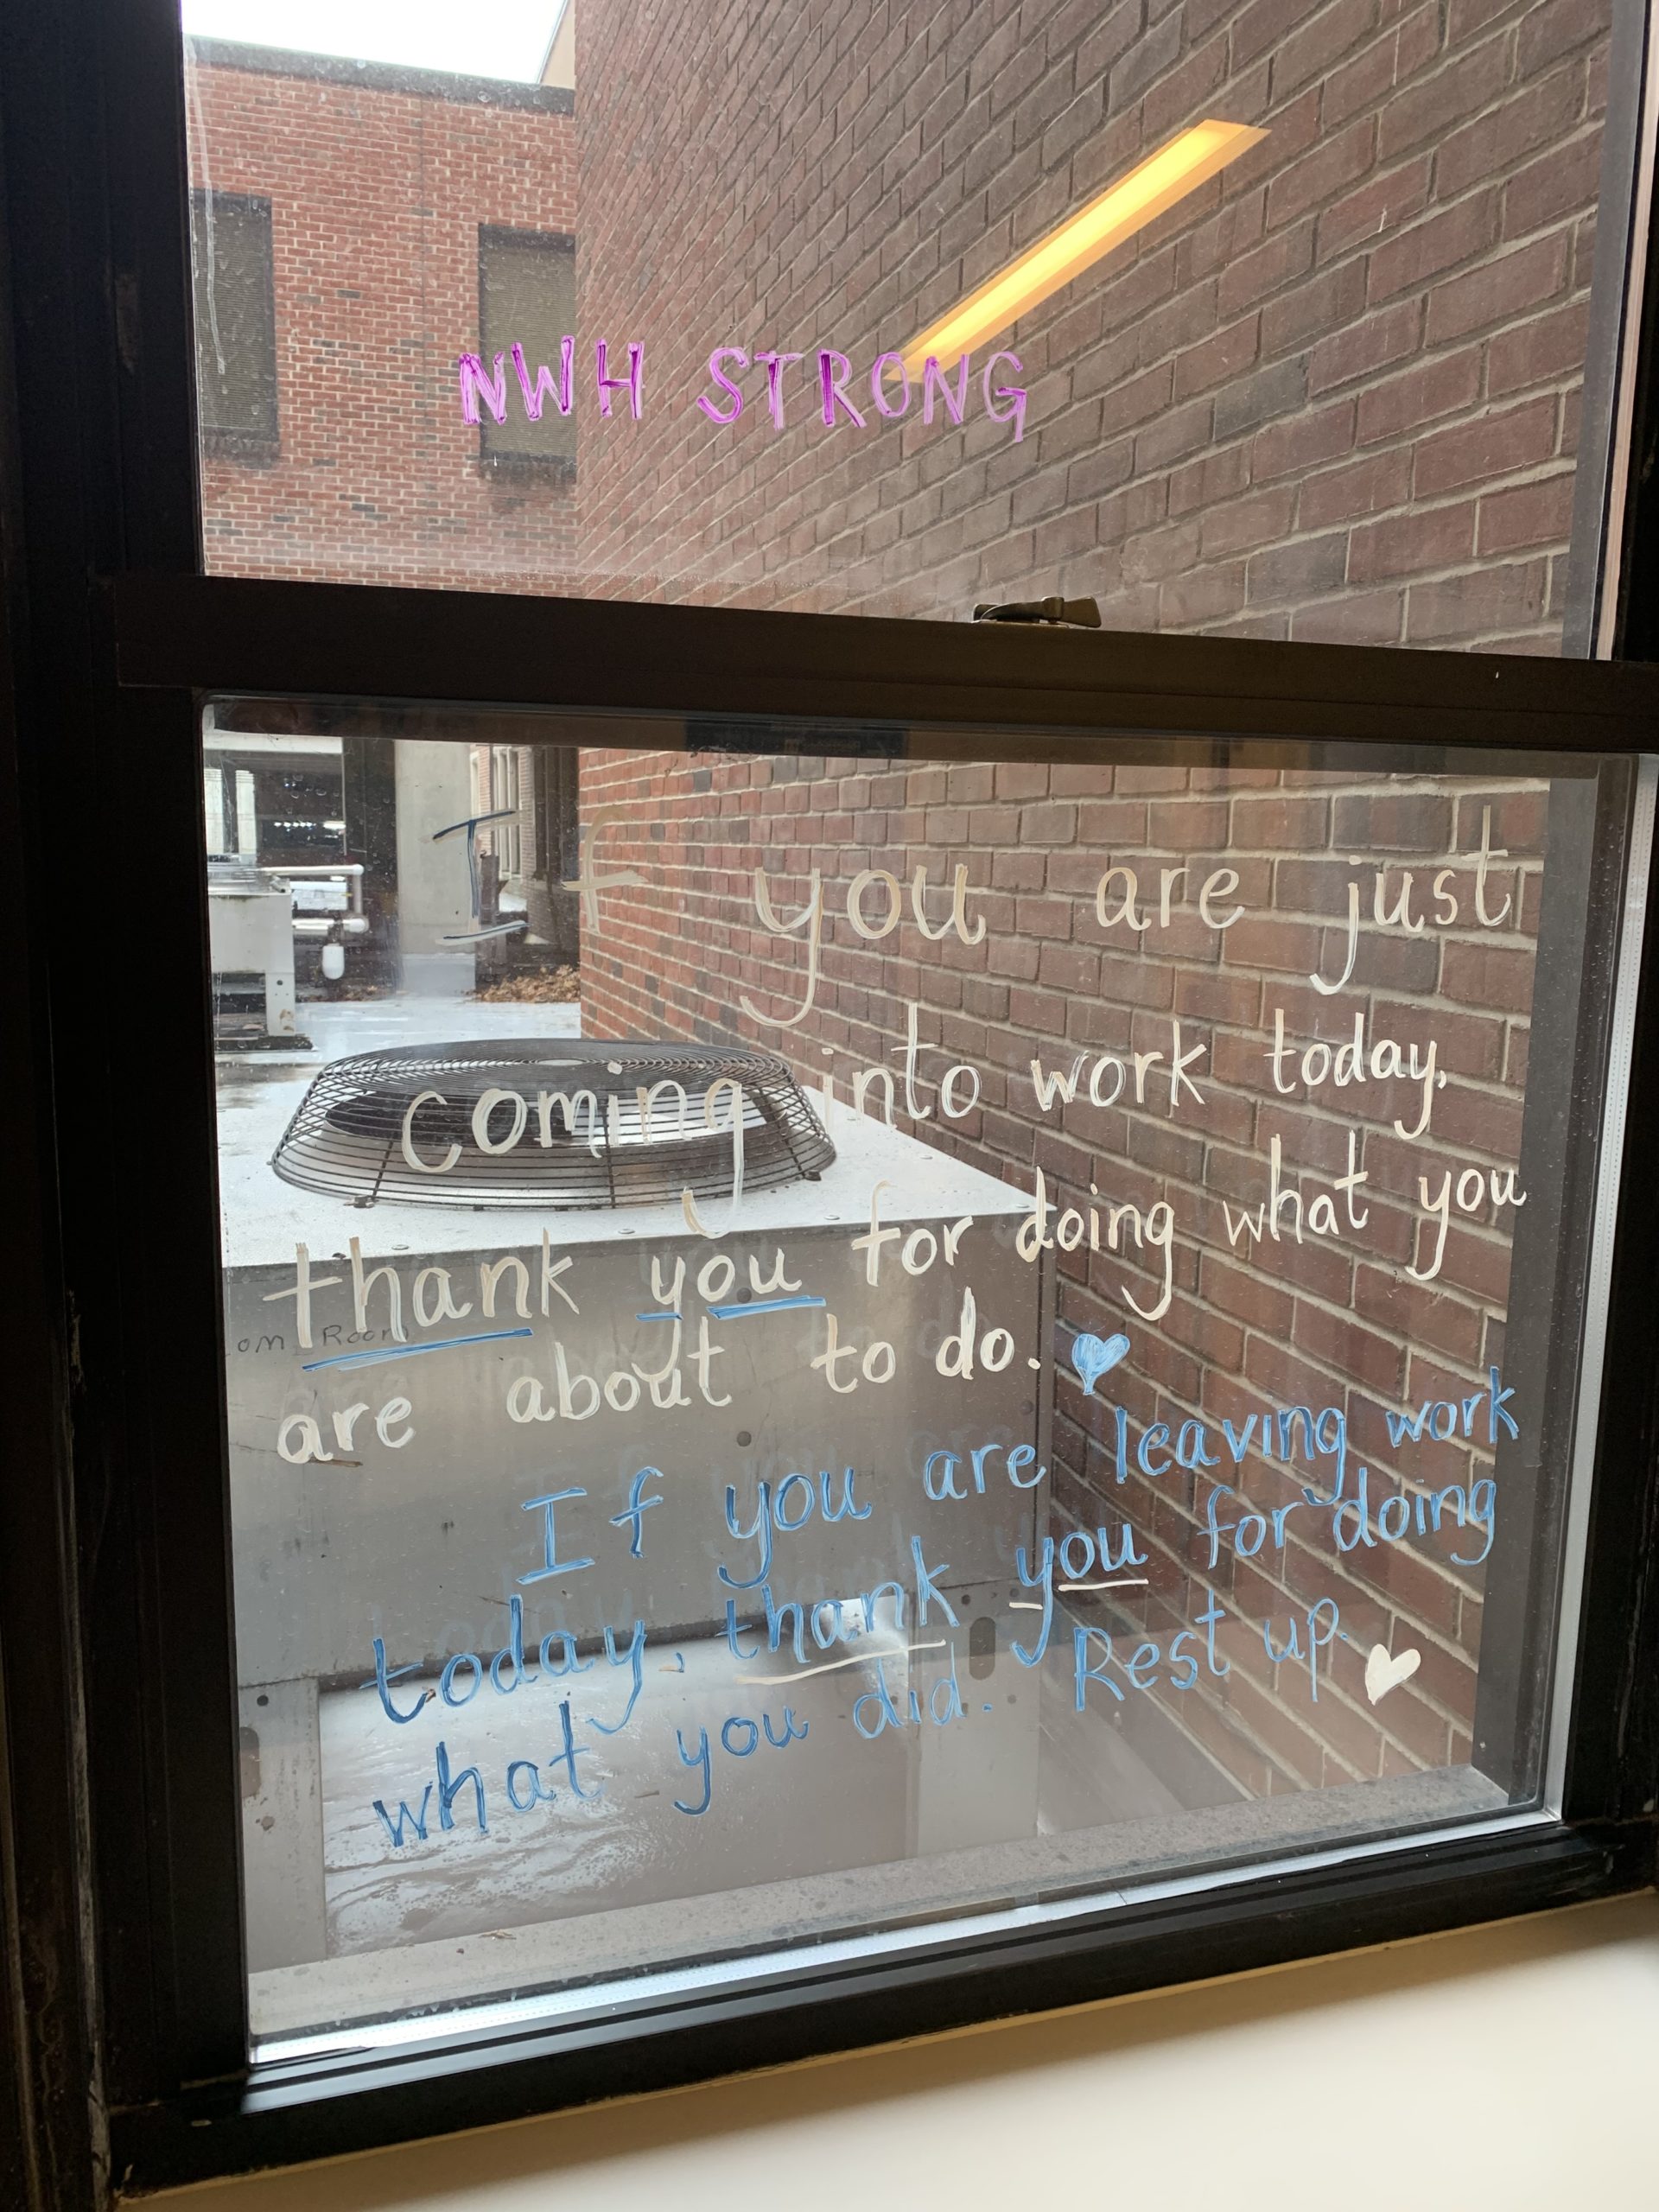 NWH STRONG
If you are just
coming into work today,
thank you for doing what you
are about to do.
If you are leaving work
today, thank you for doing
what you did. Rest up.
om Room